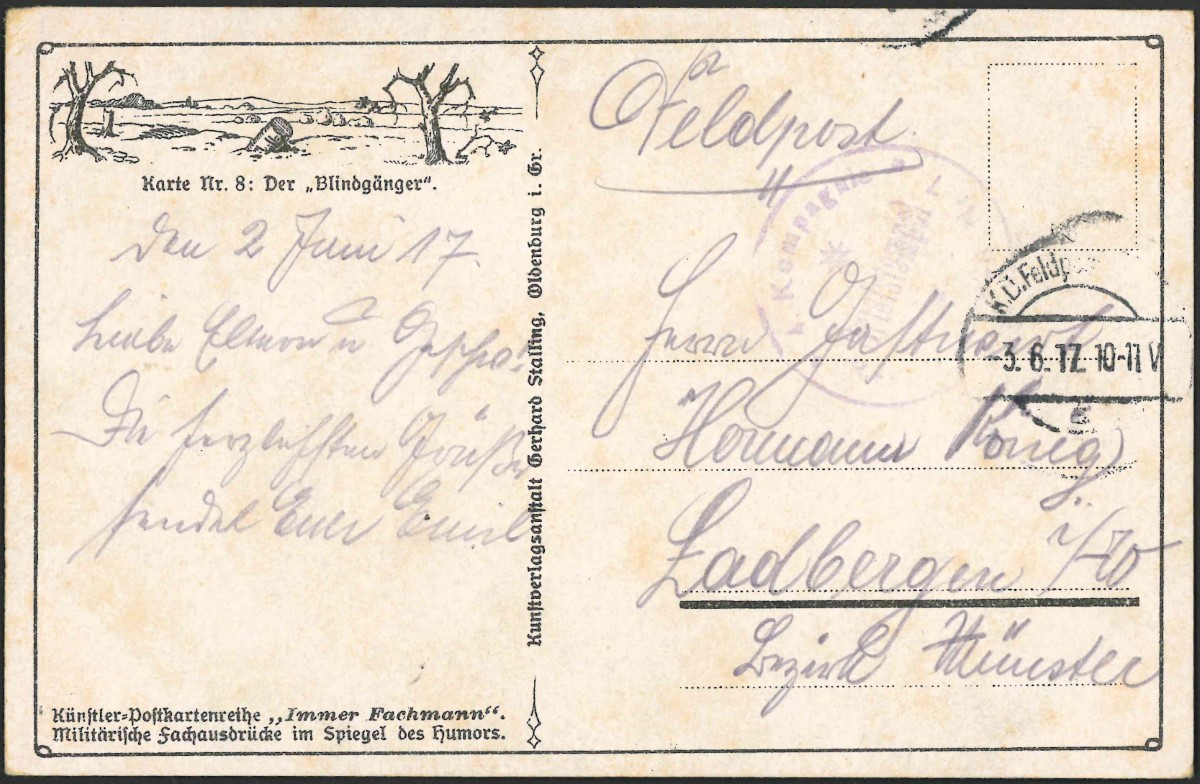 Karte Nr. 8: Der „Blindgänger“.
Den 2 Juni 17.
Liebe Eltern u Geschw.
Die herzlichsten Grüße
sendet Euer Emil
Künstler=Postkartenreihe „Immer Fachmann“.
Militärische Fachausdrücke im Spiegel des Humors.
Kunstverlagsanstalt Gerhard Stalling, Oldenburg i. Gr.
Feldpost
Kompagnie
K.D.Feldp
-3.6.17. 10-11 V
Herrn Gastwirt
Hermann König
Ladbergen i/W
Bezirk Münster